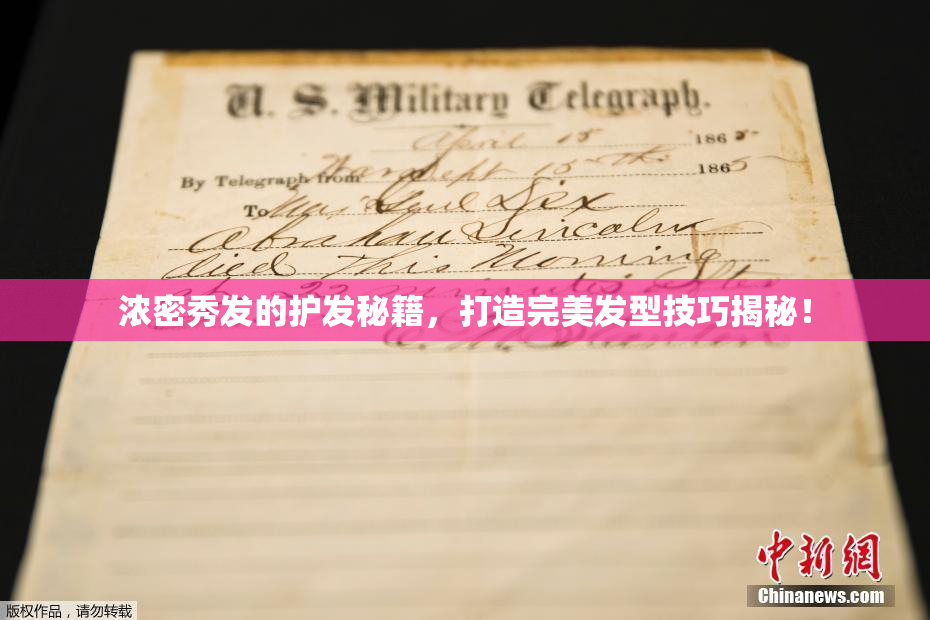 U. S. Military Telegraph.
April 15 1865
By Telegraph from War Dept 15th 1865
To Maj Genl Dix
Abraham Lincoln
died This Morning
at 22 minutes after
浓密秀发的护发秘籍，打造完美发型技巧揭秘！
中新网
Chinanews.com
版权作品，请勿转载